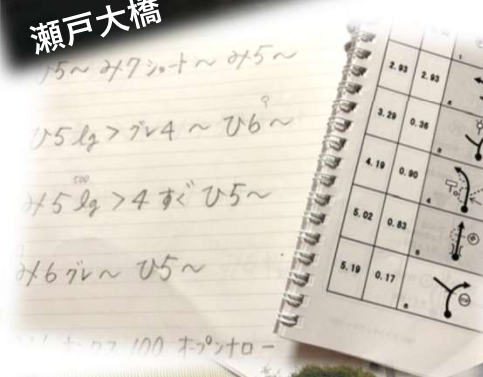 瀬戸大橋
ひ5〜 み7ショート〜 み5〜
ひ5 lg > グレ4 〜 ひ6〜
み5 lg > 4 すぐ ひ5〜
500
み6グレ〜 ひ5〜
100 オープンナロー
2.93 2.93
3.29 0.36
4.19 0.90
5.02 0.83
5.19 0.17